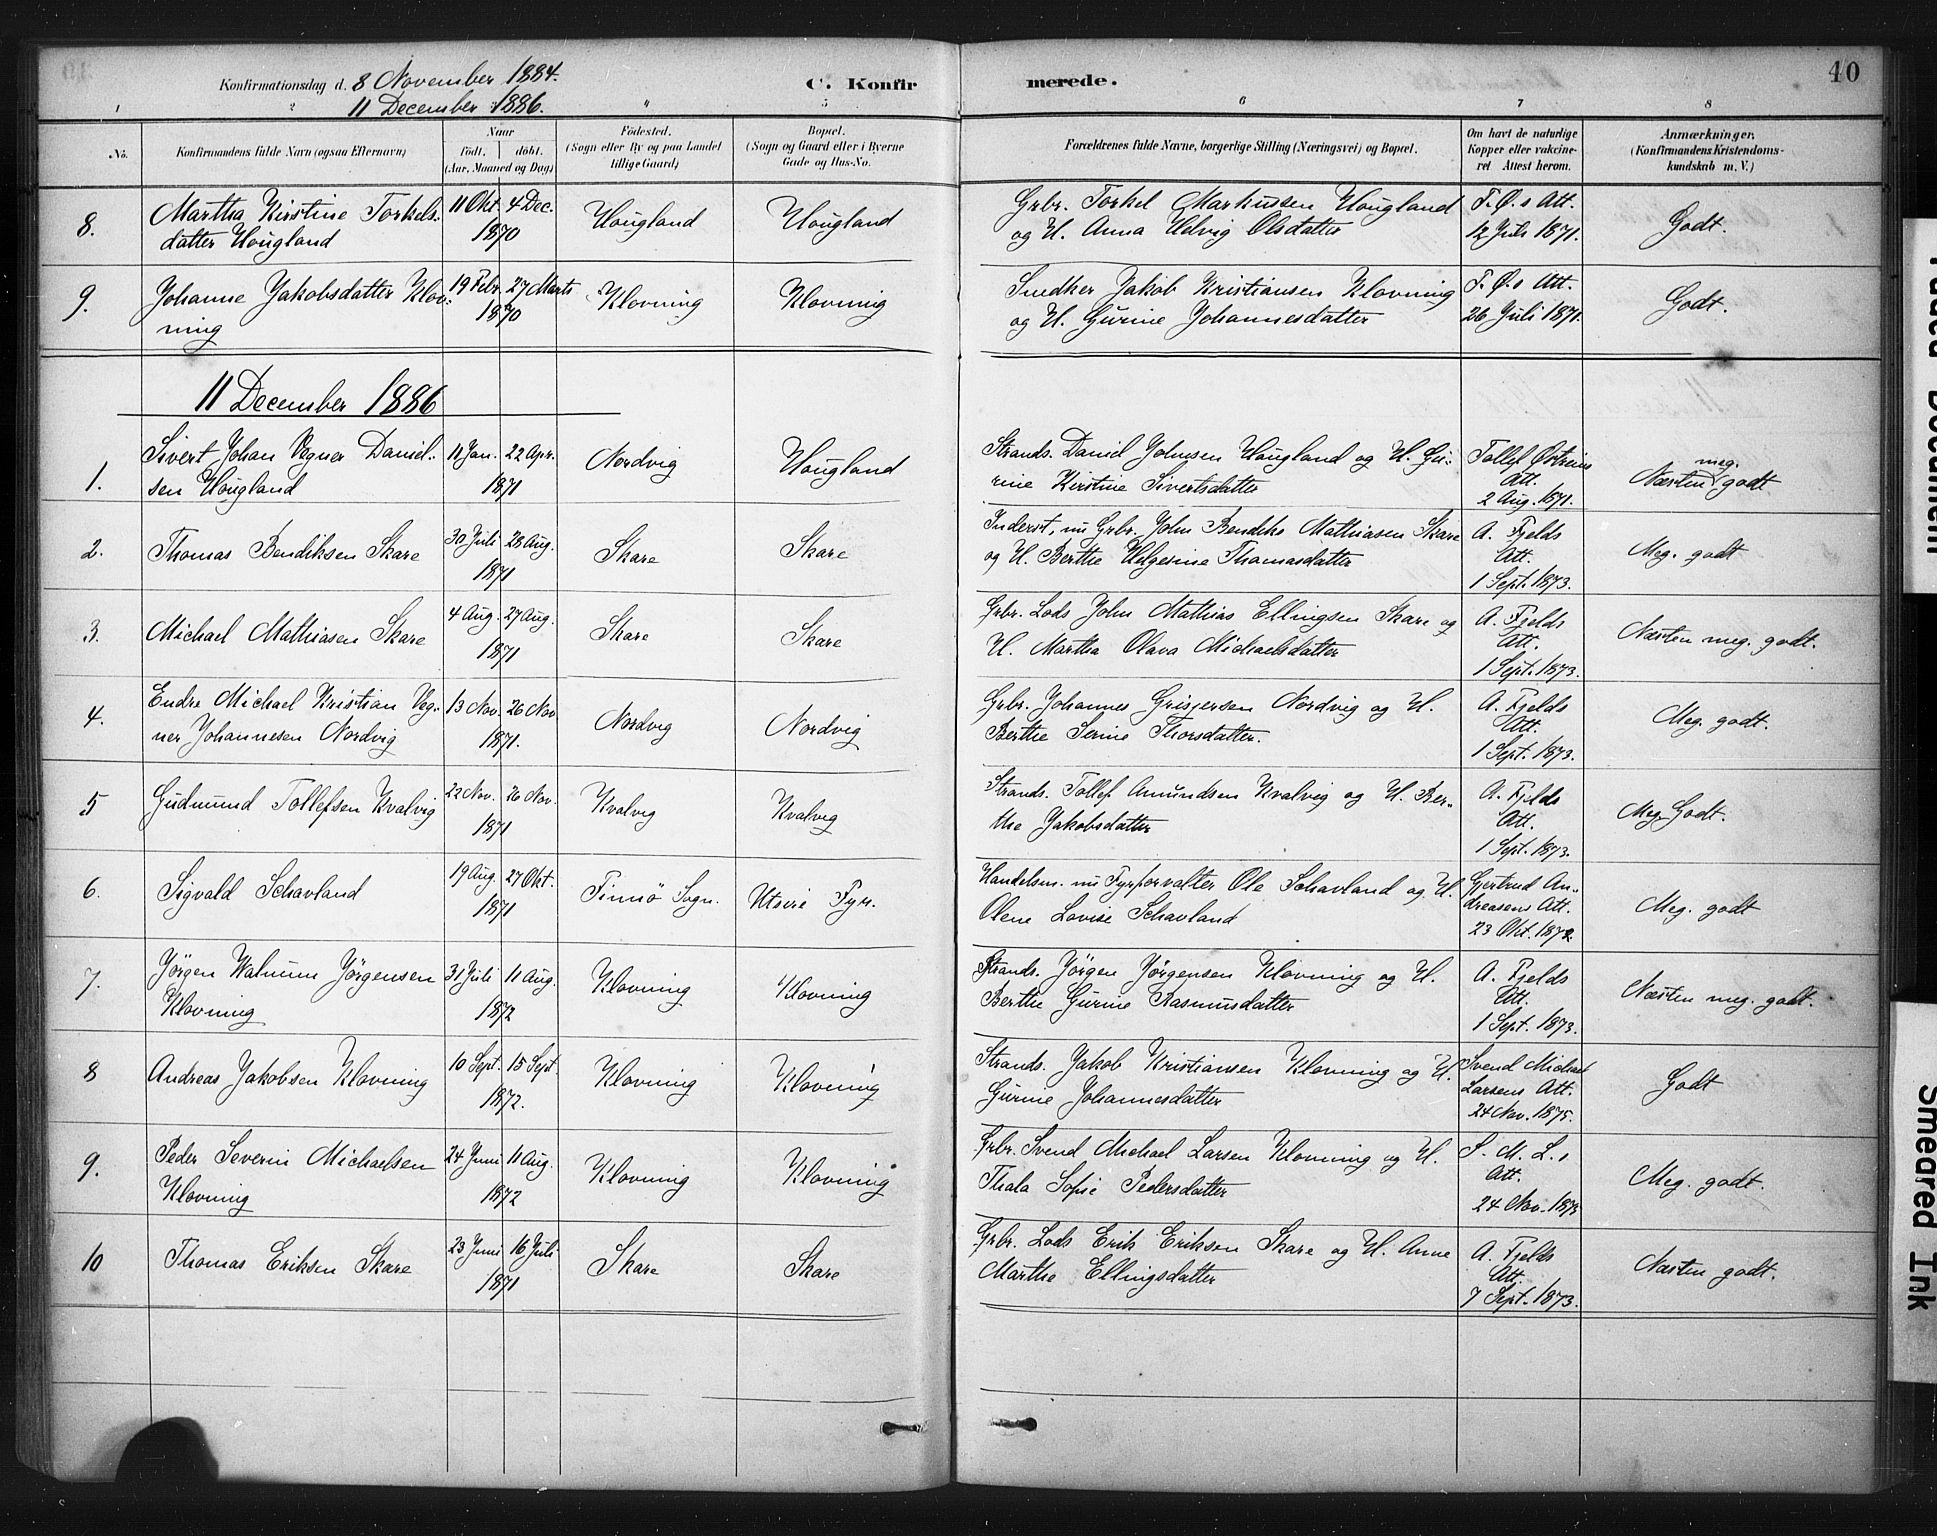 Konfirmationsdag d. 8 November 1884.
11 December 1886.
C. Konfirmerede.
40
1 2 " 5 6 7 8
No.
Konfirmandens fulde Navn (ogsaa Efternavn)
Naar
födt, döbt.
(Aar, Maaned og Dag)
Födested.
(Sogn eller By og paa Landet
tillige Gaard)
Bopæl.
(Sogn og Gaard eller i Byerne
Gade og Hus-No.
Forældrenes fulde Navne, borgerlige Stilling (Næringsvei) og Bopæl.
Om havt de naturlige
Kopper eller vakcine-
ret Attest herom.
Anmærkninger,
(Konfirmandens Kristendoms-
kundskab m. V.)
8. Martha Kirstine Torkels- datter Hougland
11 Okt. 4 Dec. 1870
Hougland
Hougland
Grbr. Torkel Markussen Hougland
og H. Anna Helvig Olsdatter
T. Ø.s Att.
12 Juli 1871.
Godt.
9. Johanne Jakobsdatter Klov-
ning
19 Febr. 27 Marts 1870
Klovning
Klovning
Snedker Jakob Kristiansen Klovning
og H. Gurine Johannesdatter
T. Ø.s Att.
26 Juli 1871.
Godt.
11 December 1886
1. Sivert Johan Vegner Daniel-
sen Hougland
11 Jan. 22 Apr. 1871
Nordvig
Hougland
Strands. Daniel Johnsen Hougland og H. Gu-
rine Kirstine Sivertsdatter
Tollef Østreims
Att.
2 Aug. 1871.
Næsten meg. godt
2. Thomas Bendiksen Skare
30 Juli 28 Aug. 1871
Skare
Skare
Inderst, nu Grbr. John Bendiks Mathiasen Skare
og H. Berthe Helgesine Thomasdatter
A. Fjelds
Att.
1 Sept. 1873.
Meg. godt
3. Michael Mathiasen Skare
4 Aug. 27 Aug. 1871
Skare
Skare
Grbr. Lods John Mathias Ellingsen Skare og
H. Martha Olava Michaelsdatter
A. Fjelds
Att.
1 Sept. 1873.
Næsten meg. godt.
4. Endre Michael Kristian Veg-
ner Johannesen Nordvig
13 Nov. 26 Nov 1871.
Nordvig
Nordvig
Grbr. Johannes Grisjersen Nordvig og H.
Berthe Serine Thorsdatter.
A. Fjelds
Att.
1 Sept. 1873.
Meg. godt.
5 Gudmund Tollefsen Kvalvig
22 Nov. 26 Nov. 1871
Kvalvig
Kvalvig
Strands. Tollef Amundsen Kvalvig og H. Ber-
the Jakobsdatter
A. Fjelds
Att.
1 Sept. 1873.
Meg. Godt.
6. Sigvald Schavland
19 Aug. 27 Okt. 1871
Finnø Sogn.
Utsire Fyr.
Handelsm. nu Fyrforvalter Ole Schavland og H.
Olene Lovise Schavland
Gjertrud An-
dreasens Att.
23 Okt. 1872.
Meg. godt
7. Jörgen Walnum Jörgensen
Klovning
31 Juli 11 Aug. 1872
Klovning
Klovning
Strands. Jörgen Jörgensen Klovning og H.
Berthe Gurine Rasmusdatter
A. Fjelds
Att.
1 Sept. 1873.
Næsten meg. godt.
8 Andreas Jakobsen Klovning
10 Sept. 15 Sept 1872.
Klovning
Klovning
Strands. Jakob Kristiansen Klovning og H.
Gurine Johannesdatter
Svend Michael
Larsens Att.
24 Nov. 1875.
Godt
9. Peder Severin Michaelsen
Klovning
24 Juni 11 Aug. 1872
Klovning
Klovning
Grbr. Svend Michael Larsen Klovning og H.
Thala Sofie Pedersdatter
S. M. L.s
Att.
24 Nov.
Meg. godt.
10 Thomas Eriksen Skare
23 Juni 16 Juli. 1871
Skare
Skare
Grbr. Lods Erik Eriksen Skare og H. Anne
Marthe Ellingsdatter
A. Fjelds
Att.
7 Sept. 1873.
Næsten godt.
Faded Document
Smeared Ink